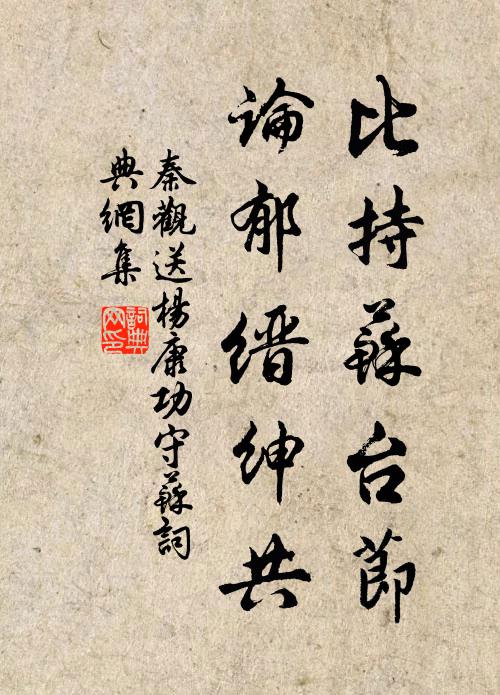 比持蘇台節
論郁縉紳共
秦觀送楊康功守蘇詞
典網集
詞典網印